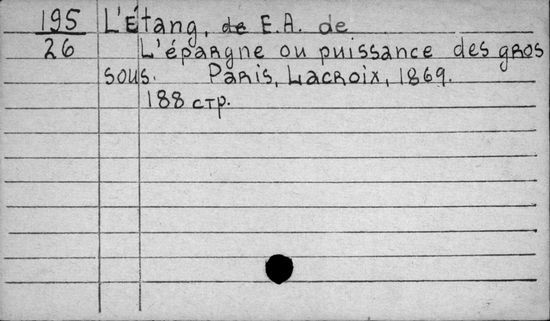 195 L'Étang, de E.A. de
26 L'épargne ou puissance des gros
sous. Paris, Lacroix, 1869.
188 стр.